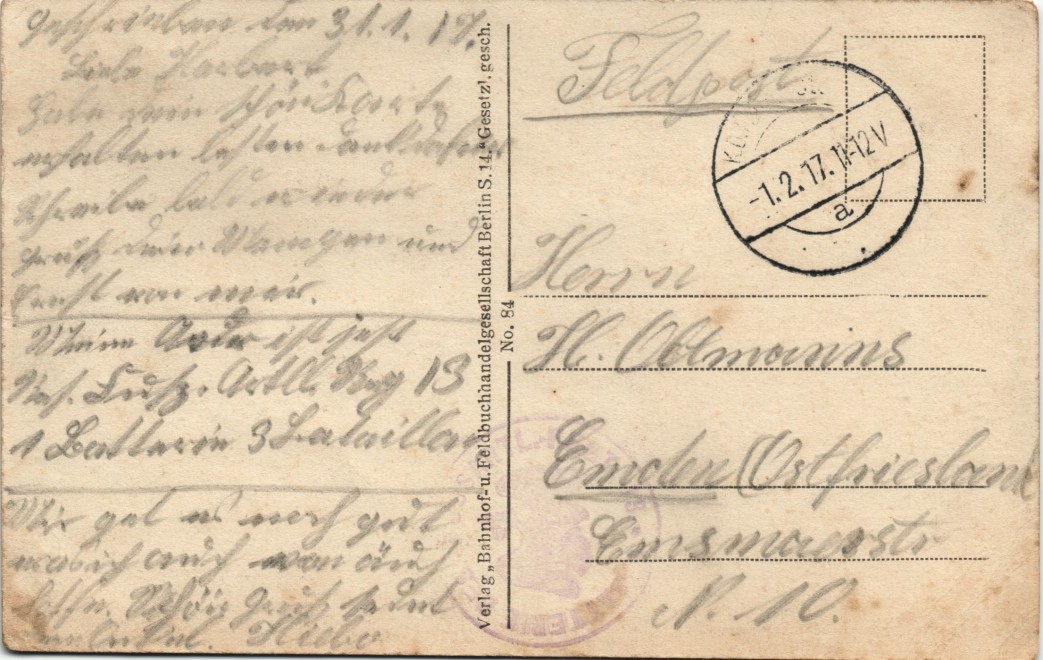 Geschrieben den 31.1.17.
Liebe Herbert
Habe dein schön Karte
erhalten besten Dank dafür
Schreibe bald wieder
Gruß dein Mamgen und
Ernst von mir.
Meine Adr ist jetz
Res. Fusz. Artll. Reg 13
1 Batterie 3 Bataillon
Mir get es noch gut
was ich auch von äuch
hoffe. Schön Gruß sendet
Onkel Hiebo
Verlag „Bahnhof- u. Feldbuchhandelgesellschaft Berlin S. 14.“ Gesetzl. gesch.
No. 84
Feldpost
-1.2.17. 11-12V
a
Herrn
H. Oltmanns
Emden (Ostfriesland
Emsmauerstr
N. 10.